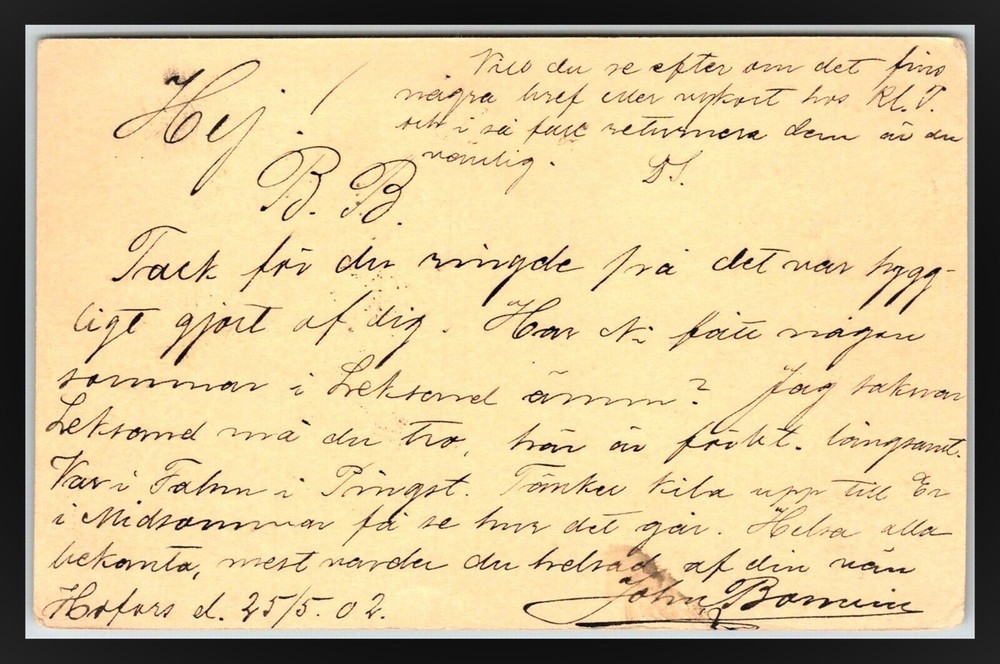 Hej !
B. B.
Tack för du ringde på det var hygg-
ligt gjort af dig. Har Ni fått någon
sommar i Leksand ännu? Jag saknar
Leksand må du tro, här är förbt. långsamt.
Var i Falun i Pingst. Tänker kila upp till Er
i Midsommar få se hur det går. Helsa alla
bekanta, mest varder du helsad af din vän
John
Hofors d. 25/5. 02.
Vill du se efter om det fins
några bref eller vykort hos Kl. T.
och i så fall returnera dem är du
vänlig. DS.